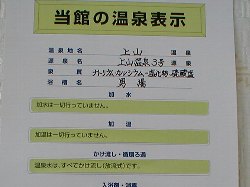 当館の温泉表示
温泉地名 上山 温泉
源泉名 上山温泉3号 源泉
泉質 ナトリウム・カルシウム-塩化物・硫酸塩
浴槽名 男湯
加水
加水は一切行っていません。
加温
加温は一切行っていません。
かけ流し・循環ろ過
温泉水は、すべてかけ流し(放流式)です。
入浴剤・消毒